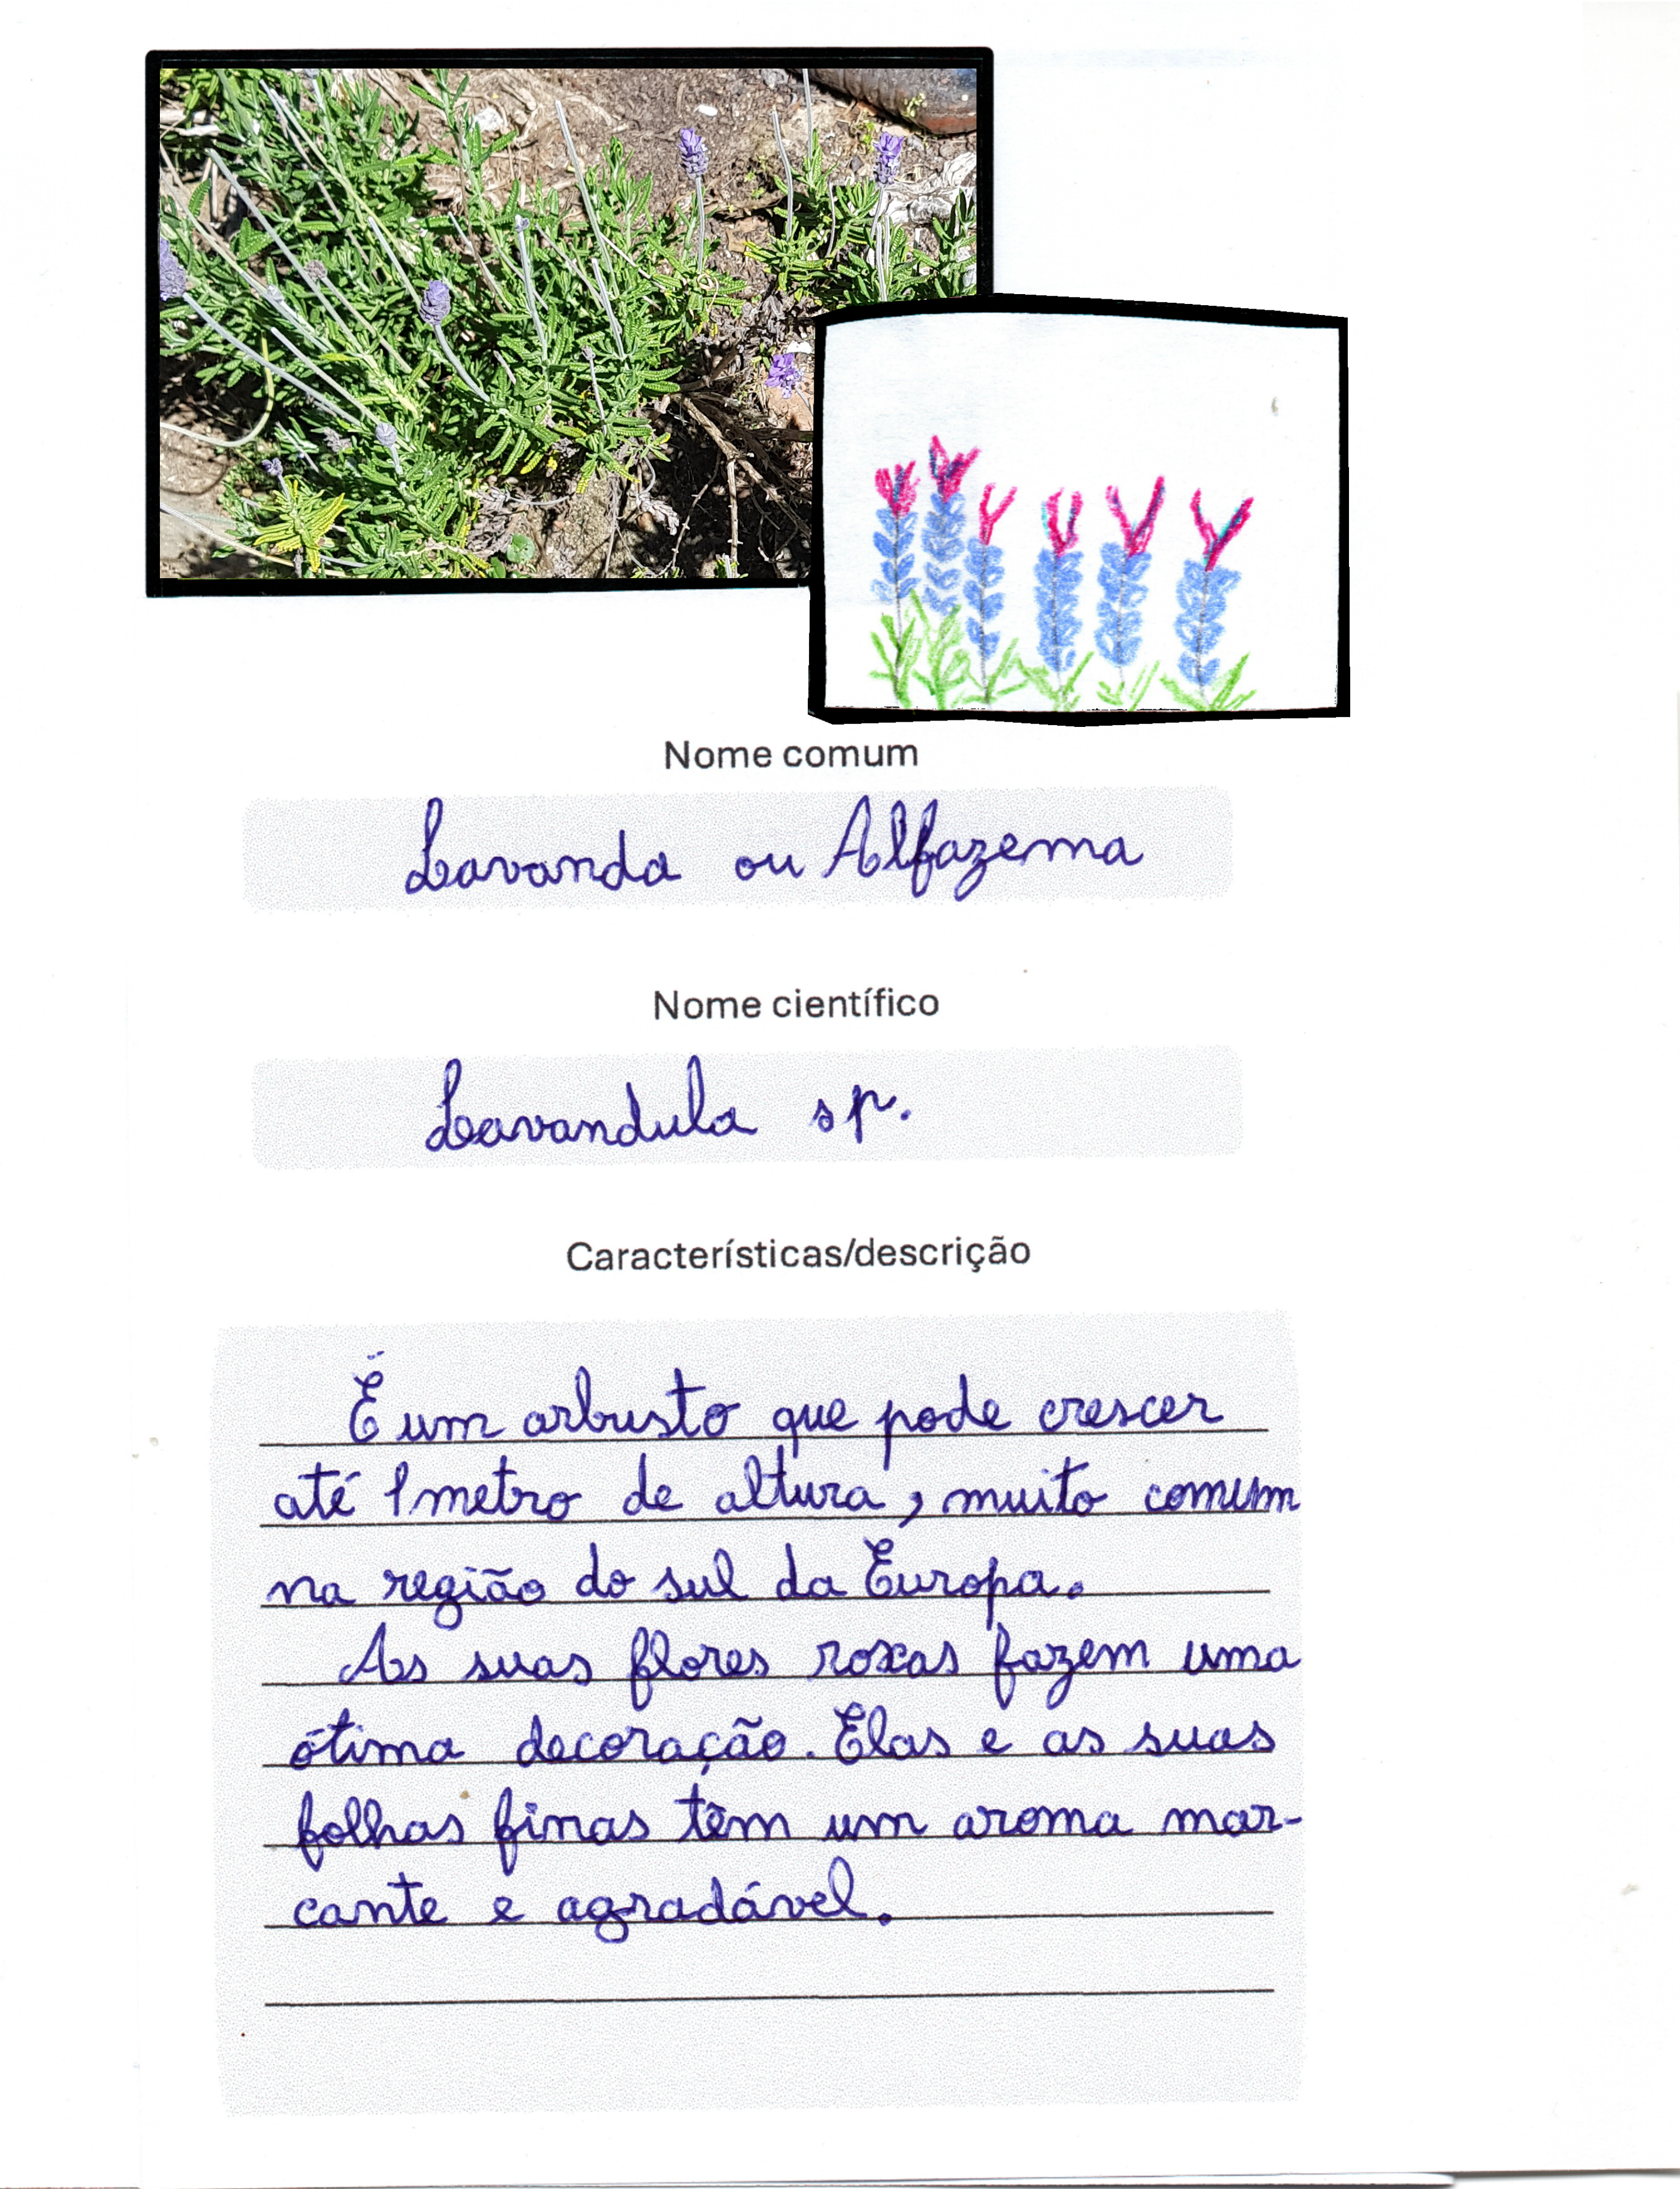 Nome comum
Lavanda ou Alfazema
Nome científico
Lavandula sp.
Características/descrição
É um arbusto que pode crescer
até 1 metro de altura, muito comum
na região do sul da Europa.
As suas flores roxas fazem uma
ótima decoração. Elas e as suas
folhas finas têm um aroma mar-
cante e agradável.